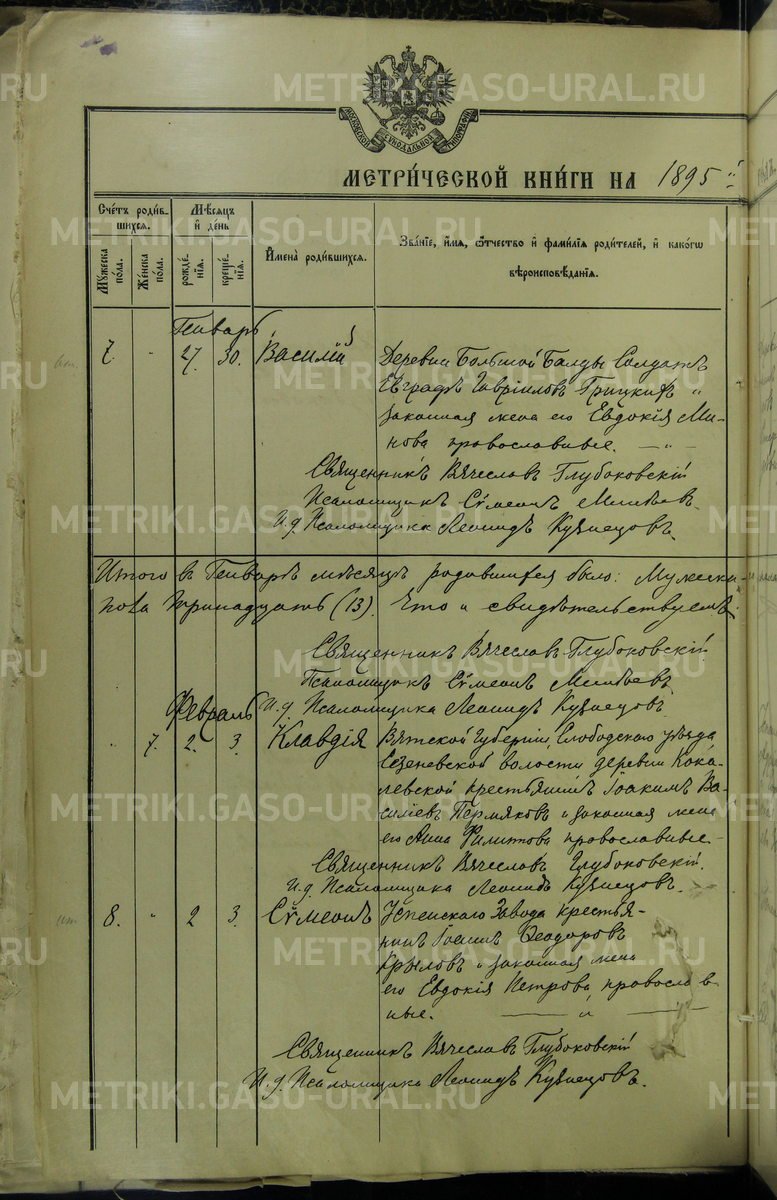 METRIKI.GASO-URAL.RU
МОСКОВСКОЙ СѴНОДАЛЬНОЙ ТИПОГРАФІИ
МЕТРИ́ЧЕСКОЙ КНИ́ГИ НА 1895
Сче́тъ роди́в-
шихся.
Му́жеска по́ла.
Же́нска по́ла.
Мѣ́сяцъ и҆ де́нь
рожде́нїѧ.
креще́нїѧ.
И҆мена̀ роди́вшихся.
Зва́нїе, и҆́мя, ѻ҆́тчество и҆ фами́лїя роди́телей, и҆ како́гѡ
вѣроисповѣ́данїя.
Генварь
7. " 27. 30. Василій
Деревни Большой Солдатъ
Евграфъ Гавріиловъ Грицкихъ "
законная жена его Евдокія Ми-
нова православные. — " —
Священникъ Вячеславъ Глубоковскій
Псаломщикъ Сѵмеонъ
И. д. Псаломщика Леонидъ Кузнецовъ.
Итого въ Генварѣ мѣсяцѣ родившихся было: Мужска
пола тринадцать (13). Что и свидѣтельствуемъ.
Священникъ Вячеславъ Глубоковскій
Псаломщикъ Сѵмеонъ
И. д. Псаломщика Леонидъ Кузнецовъ
Февраль
" 7. 2. 3. Клавдія
Вятской Губерніи, Слободскаго уѣзда
волости деревни Кока-
левской крестьянинъ Іоакимъ Ва-
силіевъ Пермяковъ и законная жена
его Анна Филитова православные —
Священникъ Вячеславъ Глубоковскій.
И. д. Псаломщика Леонидъ Кузнецовъ.
8. " 2 3. Сѵмеонъ
Успенскаго Завода крестья-
нинъ Ѳеодоровъ
Крыловъ и законная жена
его Евдокія Петрова православ-
ные. — " —
Священникъ Вячеславъ Глубоковскій
И. д. Псаломщика Леонидъ Кузнецовъ.